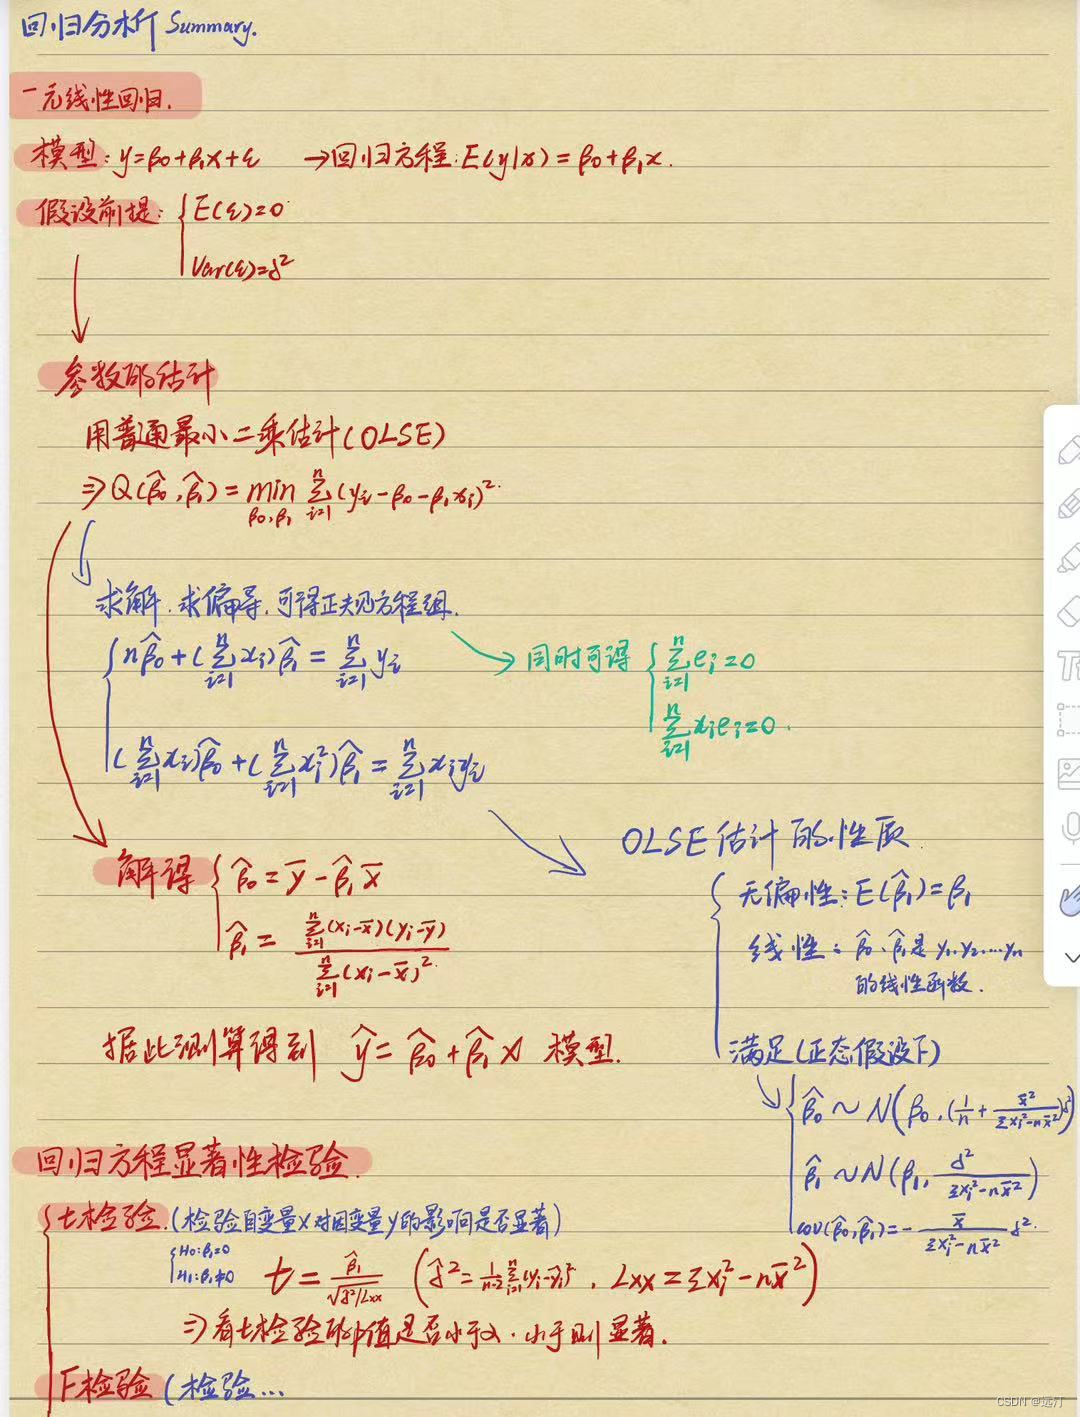 回归分析 Summary.
一元线性回归.
模型: y=β₀+β₁x+ε →回归方程: E(y|x)=β₀+β₁x.
假设前提: { E(ε)=0
Var(ε)=δ²
参数的估计
用普通最小二乘估计(OLSE)
⇒Q(β̂₀,β̂₁)=min_{β₀,β₁} Σ_{i=1}^{n}(yᵢ-β₀-β₁xᵢ)².
求解.求偏导.可得正规方程组.
{ nβ̂₀+(Σ_{i=1}^{n}xᵢ)β̂₁=Σ_{i=1}^{n}yᵢ
(Σ_{i=1}^{n}xᵢ)β̂₀+(Σ_{i=1}^{n}xᵢ²)β̂₁=Σ_{i=1}^{n}xᵢyᵢ
→ 同时可得 { Σ_{i=1}^{n}eᵢ=0
Σ_{i=1}^{n}xᵢeᵢ=0.
解得 { β̂₀=ȳ-β̂₁x̄
β̂₁=Σ_{i=1}^{n}(xᵢ-x̄)(yᵢ-ȳ)/Σ_{i=1}^{n}(xᵢ-x̄)².
OLSE估计的性质.
{ 无偏性: E(β̂₁)=β₁
线性: β̂₀、β̂₁是y₁.y₂....yₙ
的线性函数.
满足(正态假设下)
{ β̂₀~N(β₀,(1/n+x̄²/(Σxᵢ²-nx̄²))δ²)
β̂₁~N(β₁,δ²/(Σxᵢ²-nx̄²))
cov(β̂₀,β̂₁)=-x̄/(Σxᵢ²-nx̄²)δ².
据此测算得到 ŷ=β̂₀+β̂₁x 模型.
回归方程显著性检验.
{ t检验.(检验自变量x对因变量y的影响是否显著)
{ H₀:β₁=0
H₁:β₁≠0
t=β̂₁/√(δ̂²/Lxx) (δ̂²=1/(n-2)Σ_{i=1}^{n}(yᵢ-ŷᵢ)², Lxx=Σxᵢ²-nx̄²)
⇒看t检验的p值是否小于α.小于则显著.
F检验(检验...
CSDN @远汀